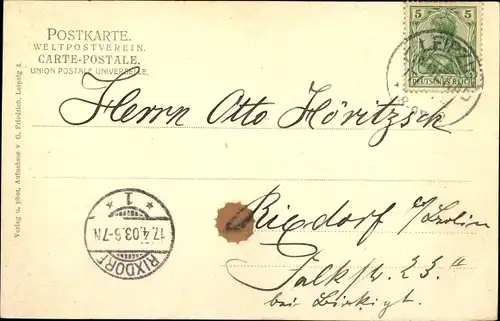 POSTKARTE.
WELTPOSTVEREIN.
CARTE-POSTALE.
UNION POSTALE UNIVERSELLE.
5 5
DEUTSCHES REICH
LEIPZIG
Herrn Otto Höritzsch
Rixdorf b/Berlin
Falkstr. 23.II
bei Birkigt.
* 1 *
17.4.03.6-7N
RIXDORF
Verlag u. phot. Aufnahme v. G. Friedrich, Leipzig 4.